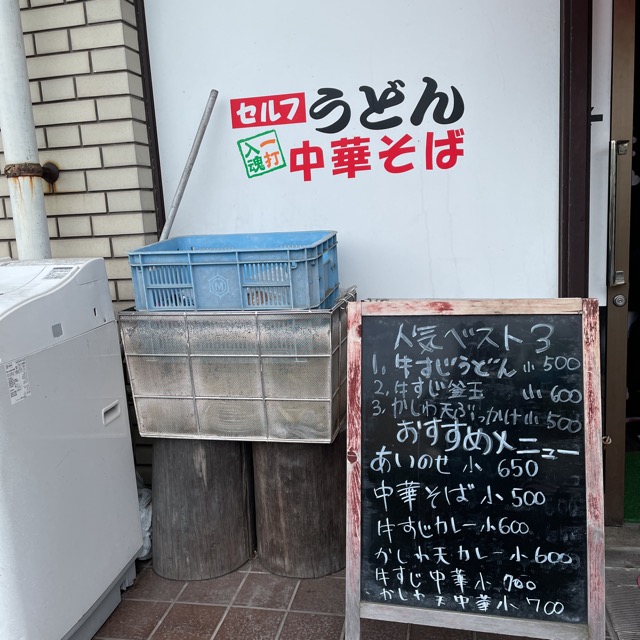 セルフ うどん
一打
入魂
中華そば
人気ベスト3
1. 牛すじうどん 小 500
2. 牛すじ釜玉 小 600
3. かしわ天ぶっかけ小 500
おすすめメニュー
あいのせ 小 650
中華そば 小 500
牛すじカレー 小 600
かしわ天カレー 小 600
牛すじ中華 小 700
かしわ天中華 小 700